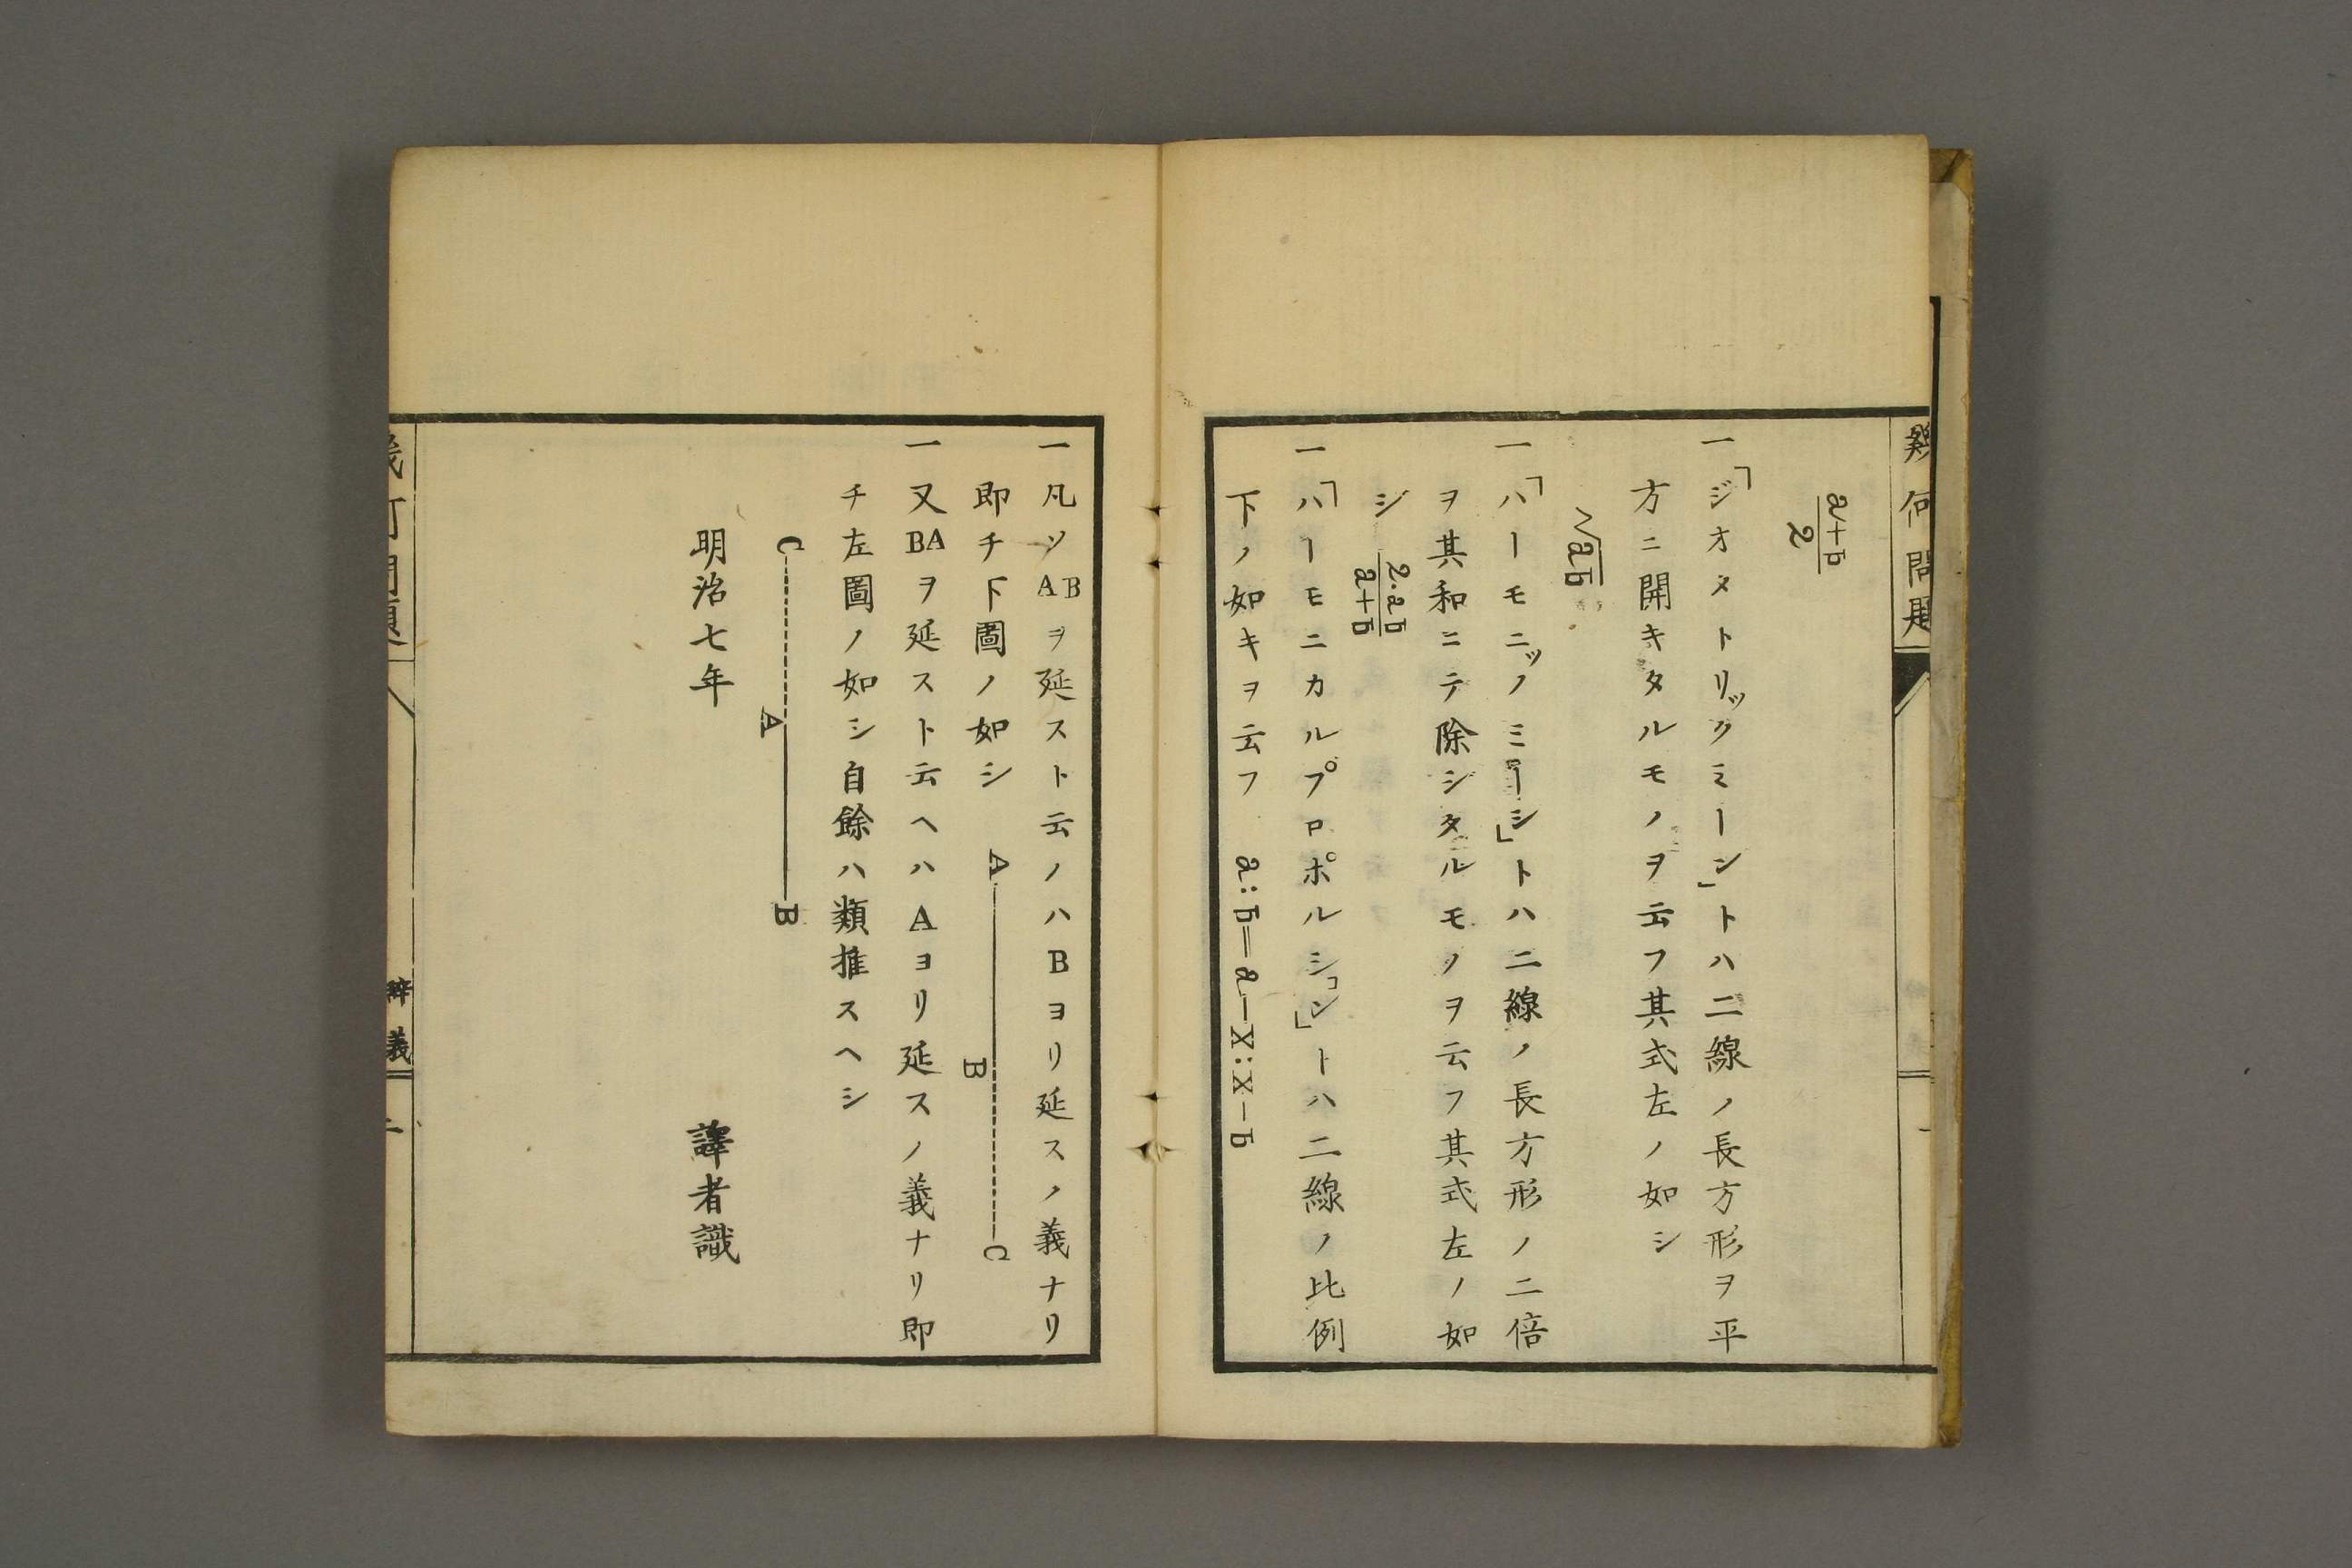 幾何問題
a+b
2
一「ジオメトリックミーン」トハ二線ノ長方形ヲ平
方ニ開キタルモノヲ云フ其式左ノ如シ
√ab
一「ハーモニッノミーン」トハ二線ノ長方形ノ二倍
ヲ其和ニテ除シタルモノヲ云フ其式左ノ如
シ
2·a·b
a+b
一「ハーモニカルプロポルション」トハ二線ノ比例
下ノ如キヲ云フ a:b=a-X:x-b
一凡ソABヲ延スト云ノハBヨリ延スノ義ナリ
即チ下圖ノ如シ A B C
一又BAヲ延スト云ヘハAヨリ延スノ義ナリ即
チ左圖ノ如シ自餘ハ類推スヘシ
C A B
明治七年 譯者識
幾何問題 釋義 二